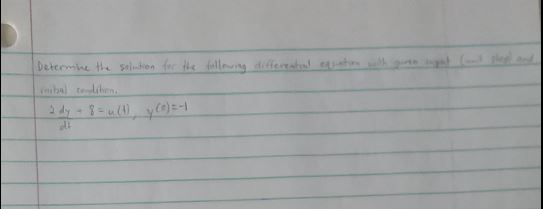 Determine the solution for the following differential equation with given input (unit step) and
initial condition.
2 dy/dt + 8 = u(t), y(0)=-1